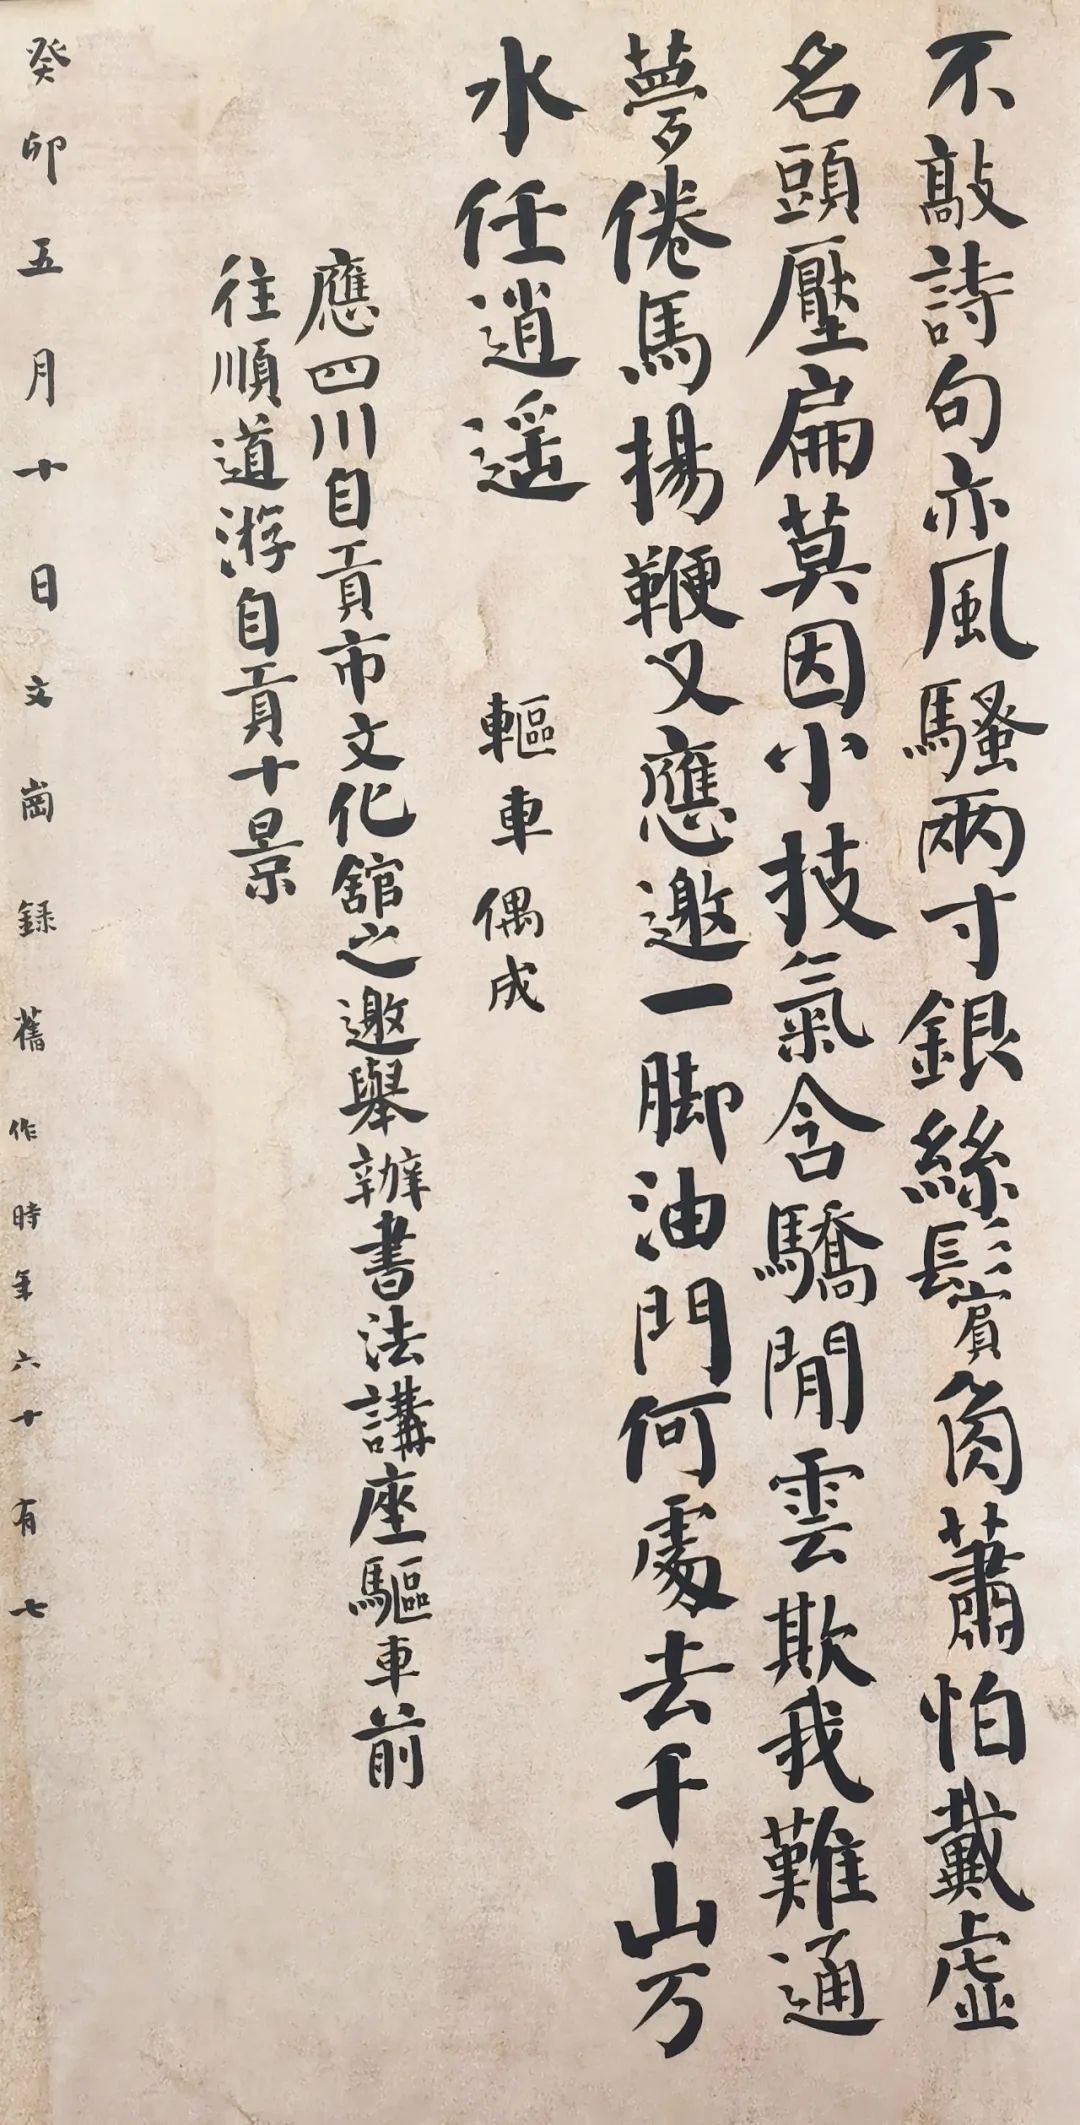 不敲詩句亦風騷兩寸銀絲鬢角蕭怕戴虛
名頭壓扁莫因小技氣含驕閒雲欺我難通
夢倦馬揚鞭又應邀一脚油門何處去千山万
水任逍遥
軀車偶成
應四川自貢市文化舘之邀舉辦書法講座驅車前
往順道游自貢十景
癸卯五月十日文崗録舊作時年六十有七